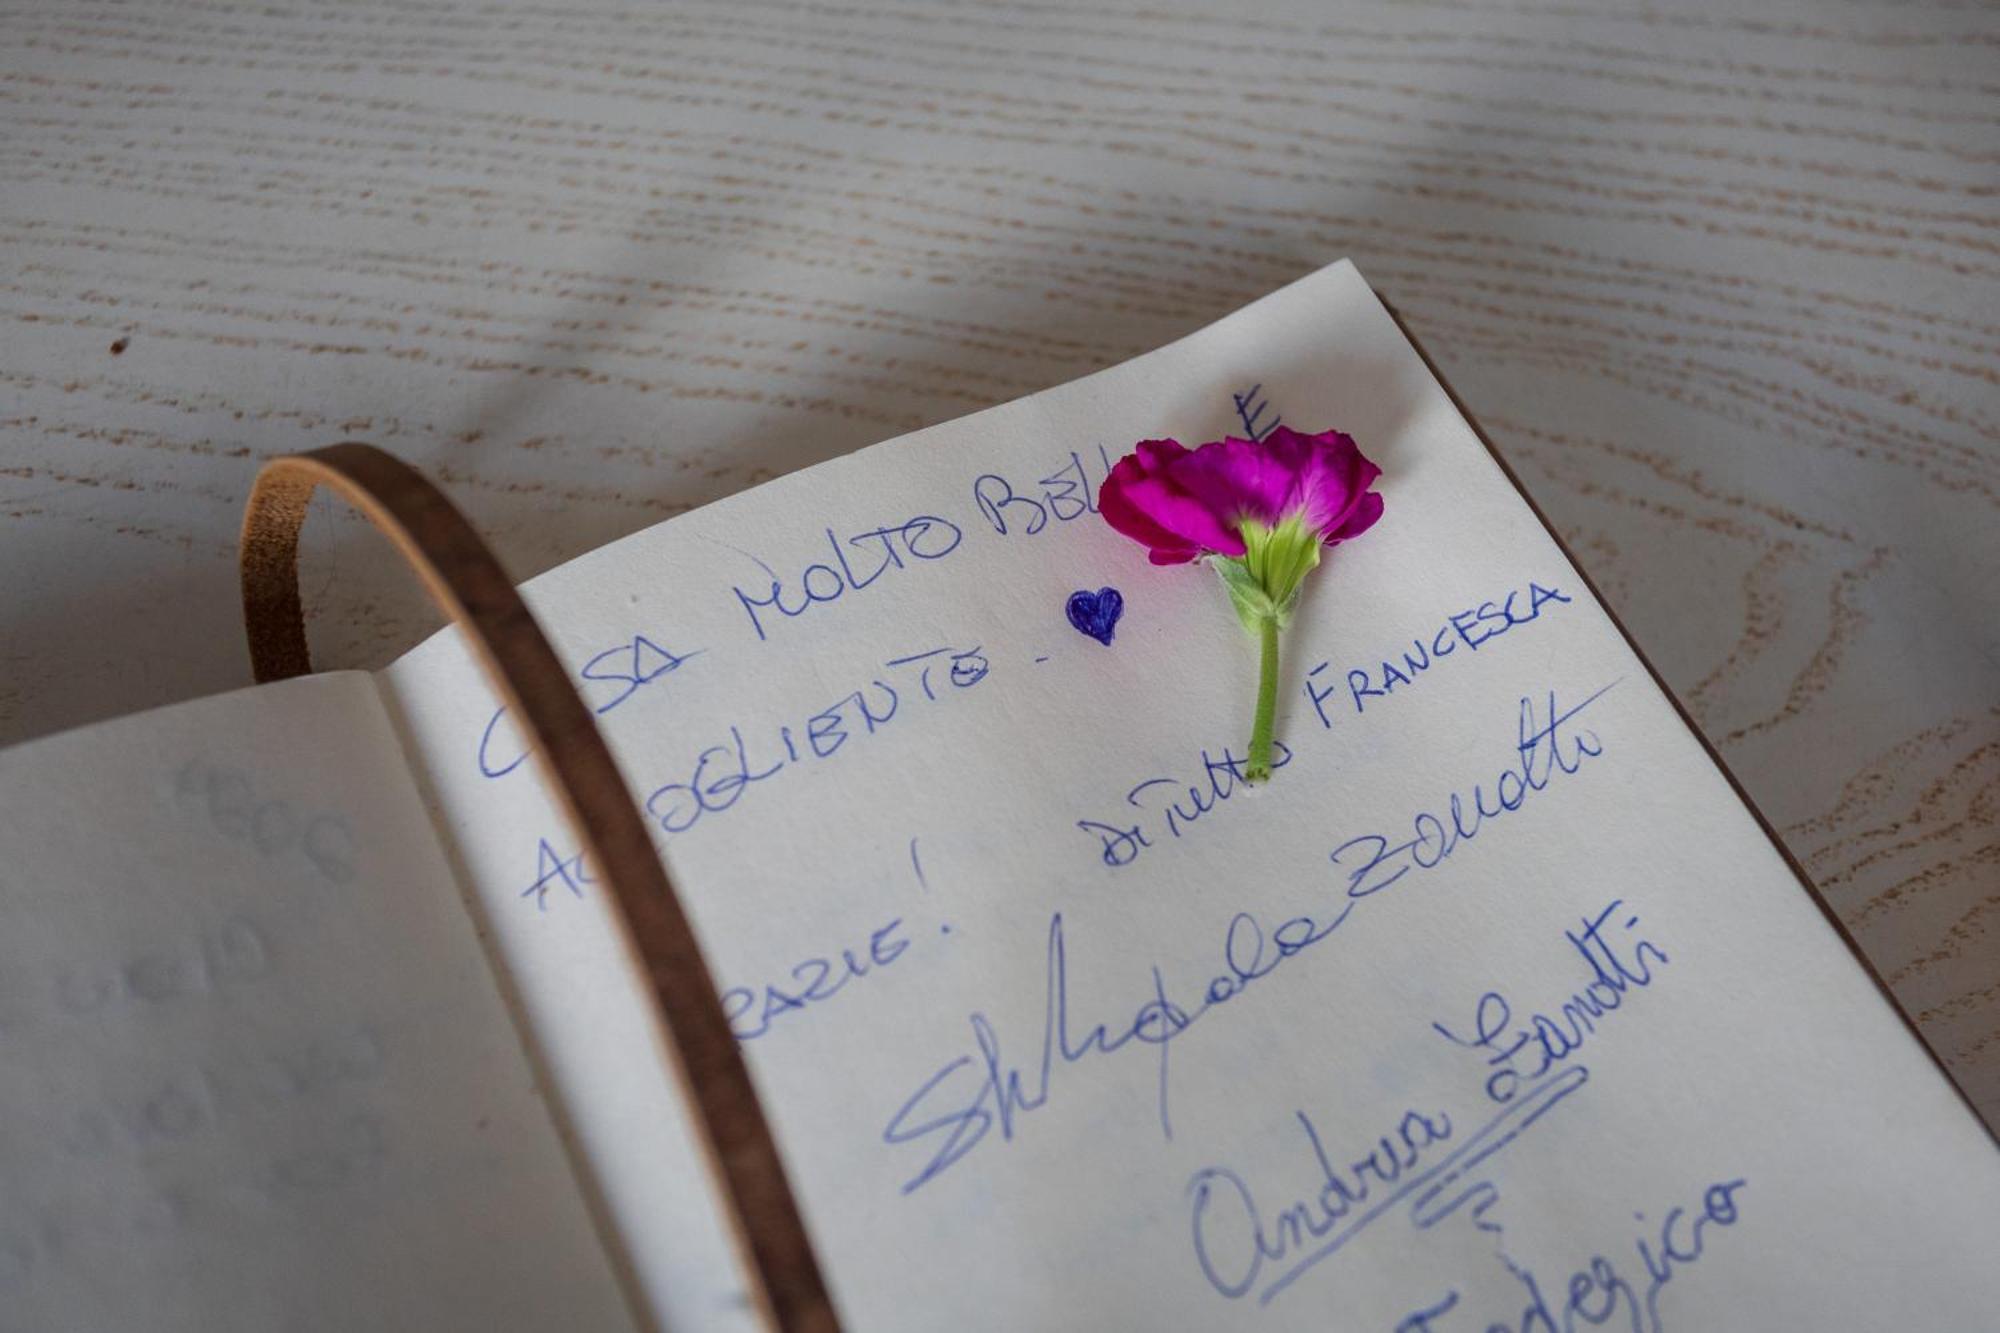 E
CASA MOLTO BELL
ACCOGLIENTO -
GRAZIE! Di Tutto FRANCESCA
Zanotti
Andrea Zanotti
Federico